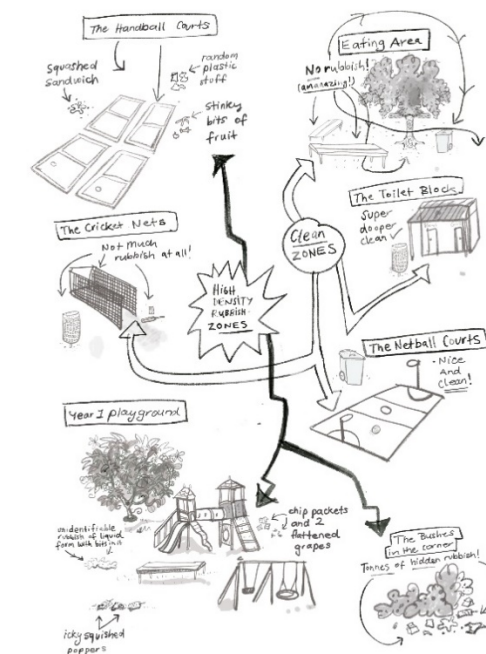 The Handball Courts
squashed
sandwich
random
plastic
stuff
stinky
bits of
fruit
Eating Area
No rubbish!
(amanazing!)
The Toilet Block
Super
dooper
clean
The Cricket Nets
Not much
rubbish at all!
Clean
ZONES
HIGH
DENSITY
RUBBISH
ZONES
The Netball Courts
Nice
And
clean!
Year 1 playground
unidentifiable
rubbish of liquid
form with bits in it
chip packets
and 2
flattened
grapes
icky squished
poppers
The Bushes
in the corner
Tonnes of hidden rubbish!